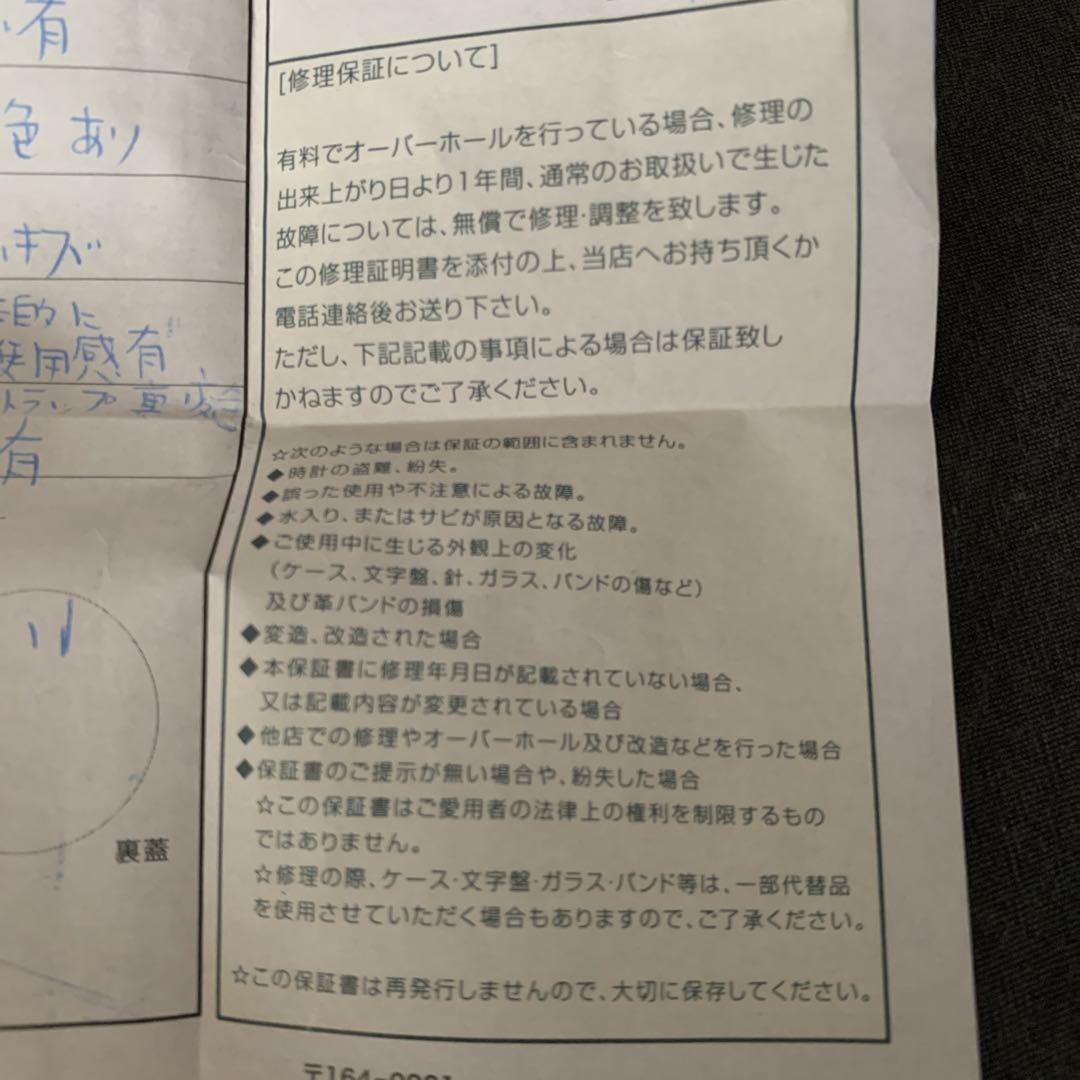 有
色 あり
キズ
的に
使用感有
トラップ裏
有
裏蓋
[修理保証について]
有料でオーバーホールを行っている場合、修理の
出来上がり日より1年間、通常のお取扱いで生じた
故障については、無償で修理・調整を致します。
この修理証明書を添付の上、当店へお持ち頂くか
電話連絡後お送り下さい。
ただし、下記記載の事項による場合は保証致し
かねますのでご了承ください。
☆次のような場合は保証の範囲に含まれません。
◆時計の盗難、紛失。
◆誤った使用や不注意による故障。
◆水入り、またはサビが原因となる故障。
◆ご使用中に生じる外観上の変化
(ケース、文字盤、針、ガラス、バンドの傷など)
及び革バンドの損傷
◆変造、改造された場合
◆本保証書に修理年月日が記載されていない場合、
又は記載内容が変更されている場合
◆他店での修理やオーバーホール及び改造などを行った場合
◆保証書のご提示が無い場合や、紛失した場合
☆この保証書はご愛用者の法律上の権利を制限するもの
ではありません。
☆修理の際、ケース・文字盤・ガラス・バンド等は、一部代替品
を使用させていただく場合もありますので、ご了承ください。
☆この保証書は再発行しませんので、大切に保存してください。